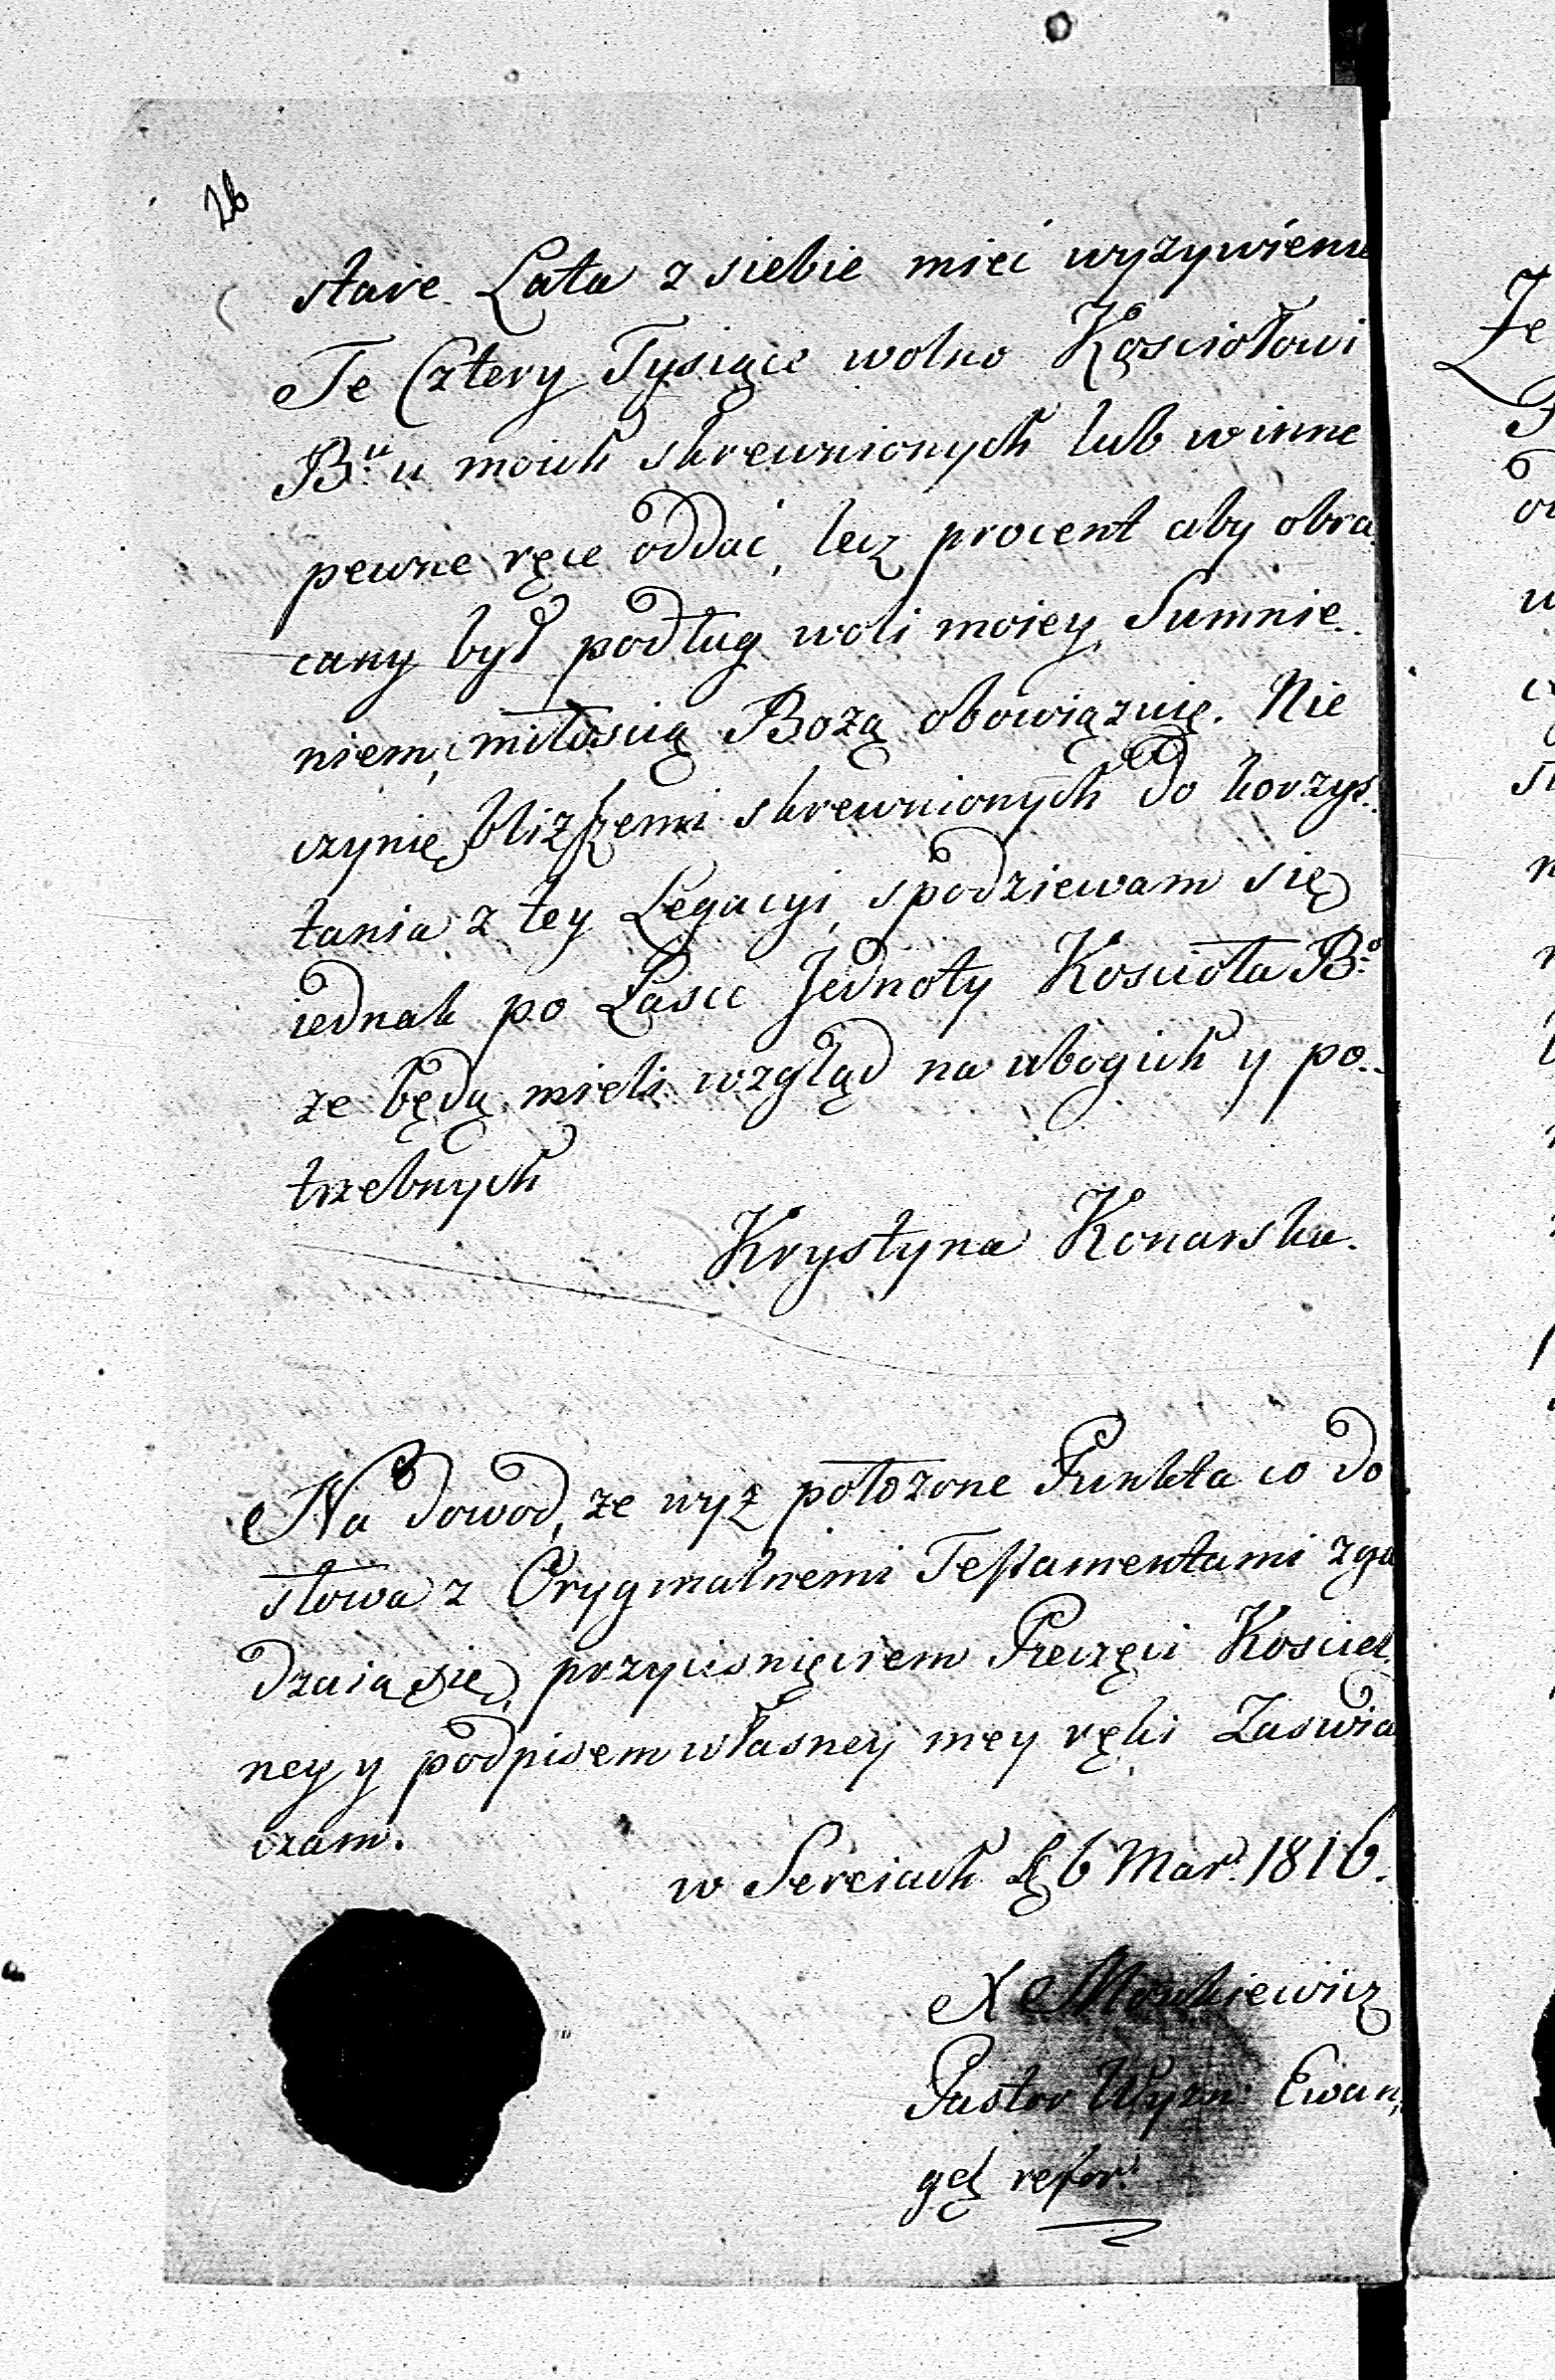 26
stare Lata z siebie mieć wyżywienie
Te Cztery Tysiące wolno Kościołowi
B.u u moich skrewnionych lub w inne
pewne ręce oddać, lecz procent aby obra
cany był podług woli moiey Sumnie-
niem, miłością Bożą obowiązuię. Nie
czynię bliższemi skrewnionych do korzys-
tania z tey Legacyi, spodziewam się
iednak po Łasce Jednoty Kościoła B.o
że będą mieli wzgląd na ubogich y po-
trzebnych
Krystyna Konarska.
Na dowod, że wyż położone Punkta co do
słowa z Oryginalnemi Testamentami zga
dzaią się, przyciśnięciem Pieczęci Kościel
ney y podpisem własney mey ręki Zaświa
czam.
w Sereiach 6 Mar. 1816.
X
Pastor Wyzn: Ewan,
gel refor: